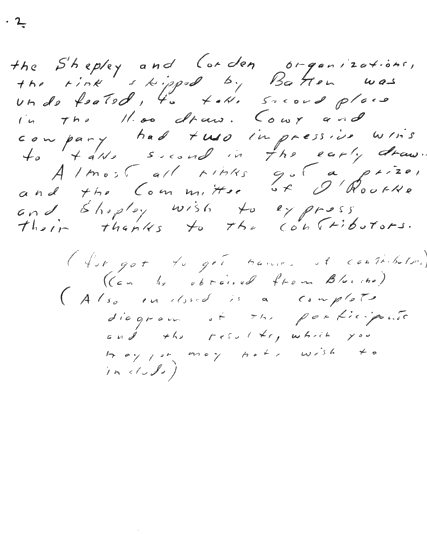 . 2
the Shepley and Corden organizations,
the rink skipped by Batten was
undefeated, to take second place
in the 11.00 draw. Cowy and
company had two impressive wins
to take second in the early draw.
Almost all rinks got a prize,
and the Committee of O'Rourke
and Shepley wish to express
their thanks to the contributors.
(forgot to get names of contributors)
(Can be obtained from )
(Also enclosed is a complete
diagram of the participants
and the results, which you
may, or may not, wish to
include)